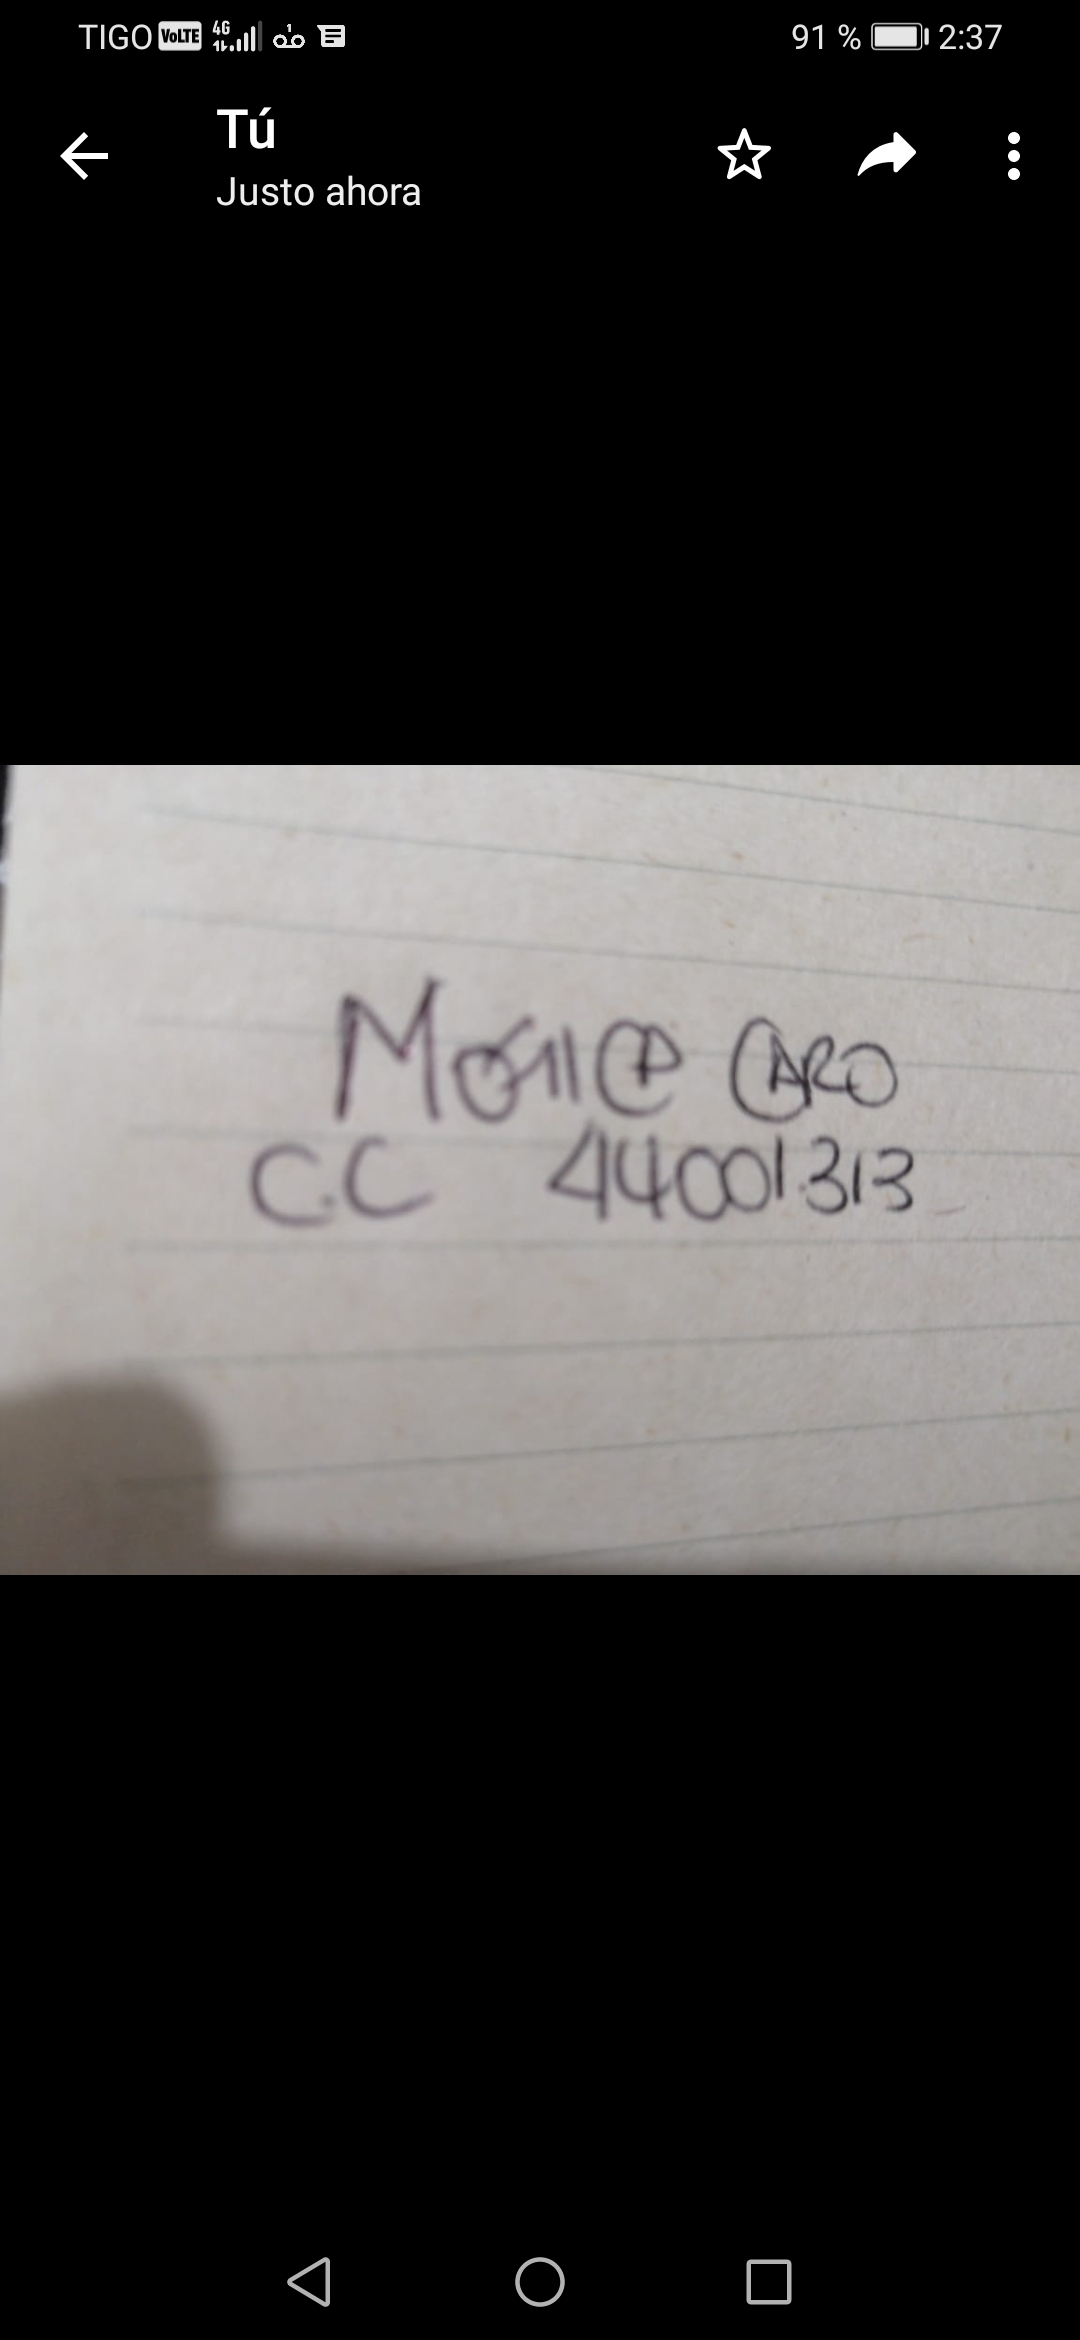 TIGO VoLTE 4G 91 % 2:37
Tú
Justo ahora
Mónica CARO
C.C 44001.313